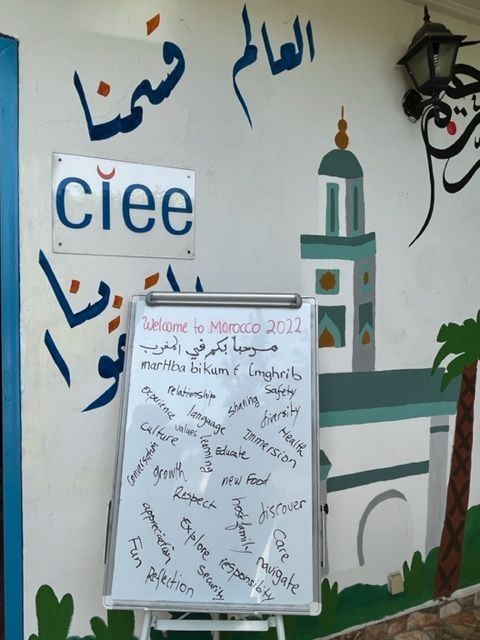 العالم
قسمنا
ciee
Welcome to Morocco 2022
مرحبا بكم في المغرب
marHba bikum f lmghrib
relationship
Safety
experience
sharing
diversity
language
values
culture
learning
Educate
Immersion
Health
Conversation
growth
new Food
Respect
host family
discover
appreciation
Explore
Care
Fun
Reflection
Security
responsibility
navigate